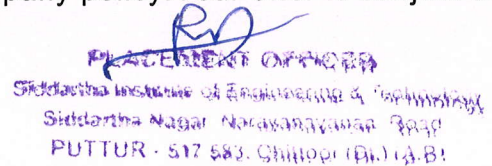 PLACEMENT OFFICER
Siddartha Institute of Engineering & Technology
Siddartha Nagar Narayanavanam Road
PUTTUR - 517 583. Chittoor (Dt.) (A.P)